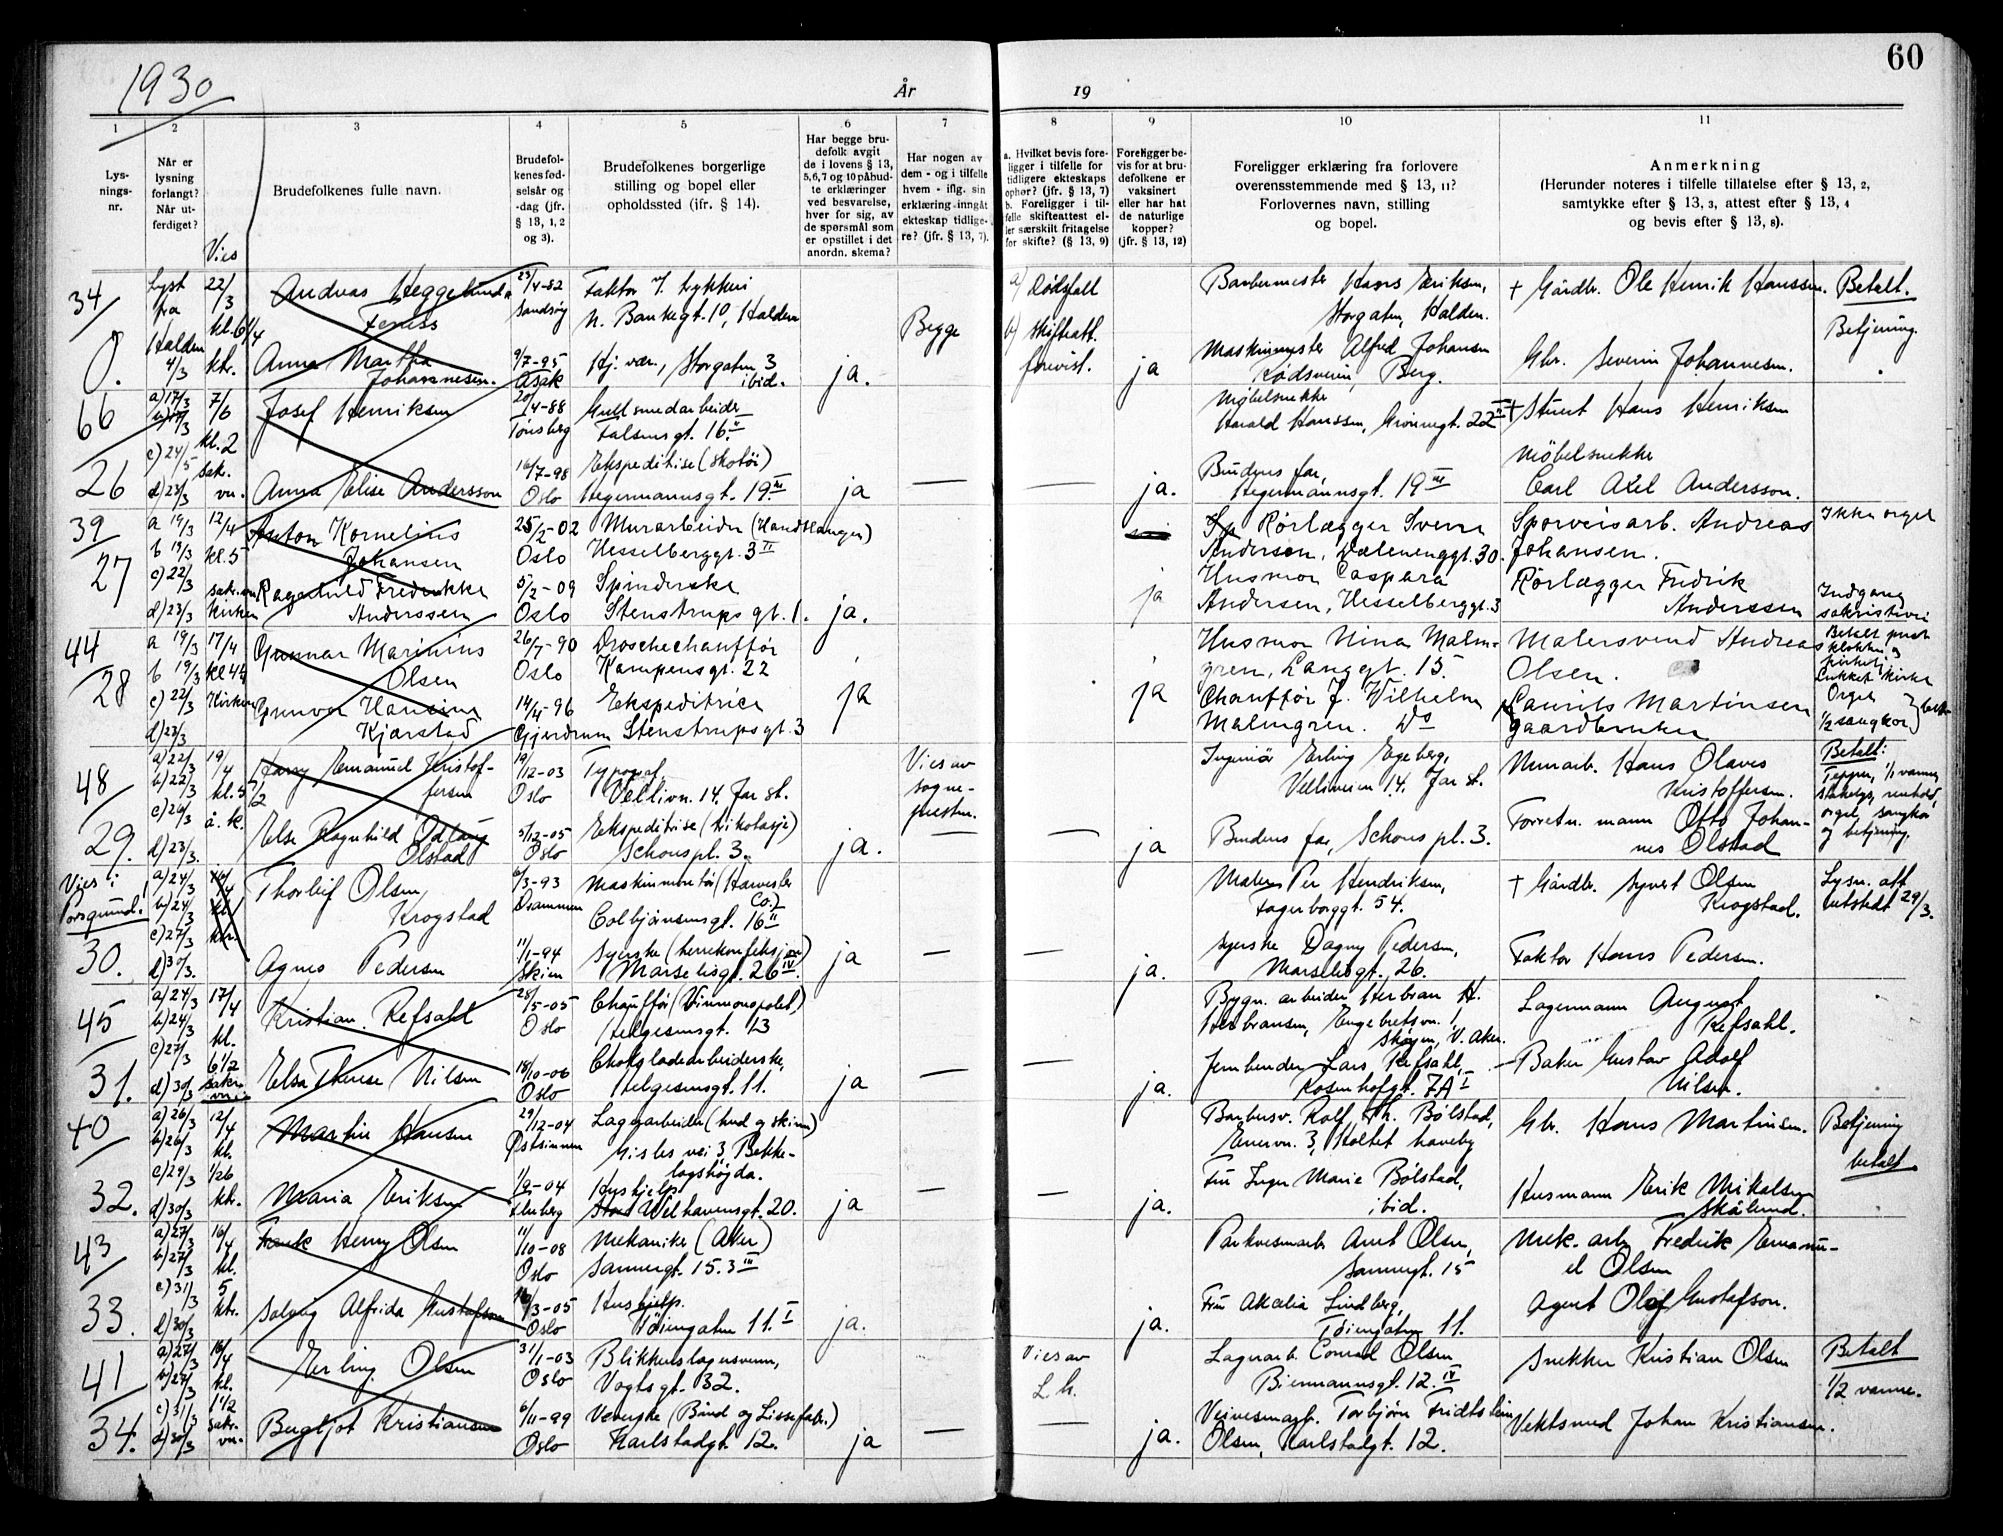 1930
År
19
60
1
2
3
4
5
6
7
8
9
10
11
Lys-
nings-
nr.
Når er
lysning
forlangt?
Når ut-
ferdiget?
Vies
Brudefolkenes fulle navn.
Brudefol-
kenes fød-
selsår og
-dag (jfr.
§ 13, 1, 2
og 3).
Brudefolkenes borgerlige
stilling og bopel eller
opholdssted (ifr. § 14).
Har begge bru-
defolk avgit
de i lovens § 13,
5,6,7 og 10 påbud-
te erklæringer
ved besvarelse,
hver for sig, av
de spørsmål som
er opstillet i det
anordn. skema?
Har nogen av
dem - og i tilfelle
hvem - iflg. sin
erklæring inngåt
ekteskap tidlige-
re? (jfr. § 13, 7).
a. Hvilket bevis fore-
ligger i tilfelle for
tidligere ekteskaps
ophør? (jfr. § 13, 7)
b. Foreligger i til-
felle skifteattest el-
ler særskilt fritagelse
for skifte? (§ 13, 9)
Foreligger be-
vis for at bru-
defolkene er
vaksinert
eller har hat
de naturlige
kopper?
(jfr. § 13, 12)
Foreligger erklæring fra forlovere
overensstemmende med § 13, 11?
Forlovernes navn, stilling
og bopel.
Anmerkning
(Herunder noteres i tilfelle tillatelse efter § 13, 2,
samtykke efter § 13, 3, attest efter § 13, 4
og bevis efter § 13, 8).
34
0.
Lyst
fra
Halden
4/3
22/3
kl. 6 1/4
ktr.
Andreas Heggelund
23/4-82
Sandsøy
N. Bankegt. 10, Halden
Anna Martha
Johannesen.
9/7-95
Asak
Hj. vær., Storgaten 3
ibid.
ja.
Begge
a) Dødsfall
b) Skifteatt.
forevist.
ja
Barbermester Hans Eriksen,
Storgaten, Halden.
Maskinmester Alfred Johansen
Rødsveien, Berg.
† Gårdbr. Ole Henrik Hanssen.
Gbr. Severin Johannesen.
Betalt.
Betjening.
66
26
a) 17/3
c) 24/5
d) 23/3
7/6
kl. 2
sakr.
Josef Henriksen
20/4-88
Tønsberg
Gullsmedarbeider
Falsensgt. 16.II
Anna Elise Andersson
16/7-98
Oslo
Ekspeditrise (skotøi)
Hegermannsgt. 19.III
ja
—
—
ja.
Møbelsnekker
Harald Hanssen, Grønnegt. 22 II
Brudens far,
Hegermannsgt. 19 III
† Stuert Hans Henriksen
Møbelsnekker
Carl Axel Andersson.
39
27
a 19/3
b 19/3
c) 22/3
d) 23/3
12/4
kl. 5
kirken
Anton Kornelius
Johansen
25/2-02
Oslo
Murarbeider (Handtlanger)
Hesselberggt. 3 II
Ragnhild Fredrikke
Anderssen
5/2-09
Oslo
Spinderske
Stenstrupsgt. 1.
ja.
ja
Rørlægger Svenn
Andersen, Dælenenggt. 30.
Husmor Caspara
Andersen, Hesselberggt. 3
Sporveisarb. Andreas
Johansen.
Rørlægger Fridrik
Anderssen
Ikke orgel
Indgang
sakristiet
44
28
a 19/3
b 19/3
c) 22/3
d) 23/3
17/4
kl 4 1/2
Kirken
Gunnar Marinius
Olsen
26/7-90
Oslo
Droschechauffør
Kampensgt. 22
Gunvor Hansine
Kjærstad
14/4-96
Gjerdrum
Ekspeditrice
Stenstrupsgt. 3
ja
ja
Husmor Nina Malm-
gren, Langgt. 15.
Chauffør J. Wilhelm
Malmgren. Do
Malersvend Andreas
Olsen.
Laurits Martinsen
gaardbruker
Orgel
1/2 sangkor
48
29.
a) 22/3
b) 22/3
c) 26/3
d) 23/3.
19/4
kl. 5 1/2
å. k.
Harry Emanuel Kristof-
fersen
19/12-03
Oslo
Typograf
Vetlivn. 14. Jar st.
Else Ragnhild Odlaug
Olstad
5/12-05
Oslo
Ekspeditrise (trikotasje)
Schouspl. 3.
ja.
Vies av
sogne-
presten.
—
—
ja
Ingeniør Erling Egeberg,
Vetliveien 14. Jar st.
Brudens far, Schous pl. 3.
Murarb. Hans Olaves
Kristoffersen.
Forretn. mann Otto Johan-
nes Olstad
Betalt:
Tepper, 1/1 varme,
stakelys, renhold,
orgel, sangkor
og betjening.
Vies i
Porsgrund!
30.
a) 24/3
b) 24/3
c) 27/3
d) 30/3.
16/4
kl.
ktr.
Thorleif Olsen
Krogstad
6/3-93
Drammen
Maskinmontør (Harvester
Co.)
Colbjørnsensgt. 16 II
Agnes Pedersen
11/1-94
Skien
Syerske (herrekonfeksjon)
Marselisgt. 26 IV.
ja
—
—
ja.
Maler Per Hendriksen,
Fagerborggt. 54.
Syerske Dagny Pedersen,
Marselisgt. 26.
† Gårdbr. Syvert Olsen
Krogstad.
Faktor Hans Pedersen.
Lysn. att.
utstedt 29/3.
45
31.
a) 24/3
b) 24/3
c) 27/3
d) 30/3
17/4
kl.
6 1/2
sakr.
Kristian Refsahl
28/5-05
Oslo
Chauffør (Vinmonopolet)
Helgesensgt. 13
Elsa Therese Nilsen
18/10-06
Oslo
Chokoladearbeiderske,
Helgesensgt. 11.
ja
—
—
ja.
Bygn. arbeider Herbran H.
Herbransen, Engebretsvn. 1,
Skøyen, V. Aker.
Jernbender Lars Refsahl,
Rosenhofgt. 7A I
Lagermann August
Refsahl.
Baker Gustav Adolf
Nilsen.
40
32.
a) 26/3
b) 26/3
c) 29/3
d) 30/3
12/4
kl.
ktr.
Martin Hansen
29/12-04
Østsinnen
Lagerarbeider (hud og skinn)
Gisles vei 3, Bekke-
lagshøgda.
Maria Eriksen
1/9-04
Hushjelp
Welhavensgt. 20.
ja
—
—
ja.
Barbersv. Rolf Th. Bølstad,
Enervn. 3, Holtet haveby
Fru Inger Marie Bølstad,
ibid.
Gbr. Hans Martinsen.
Husmann Erik Mikalsen
Skålerud.
Betjening
betalt
43
33.
a) 27/3
b) 27/3
c) 31/3
d) 30/3
16/4
kl.
5
ktr.
Frank Henry Olsen
11/10-08
Oslo
Mekaniker (Aker)
Sannergt. 15. 3 III
Solveig Alfrida Gustafson
16/3-05
Oslo
Hushjelp.
Tøiengaten 11. I
ja.
ja.
Parkvesenarb. Arnt Olsen,
Sannergt. 15
Fru Akelia Lindberg,
Tøiengaten 11.
Mek. arb. Fredrik Emanu-
el Olsen
Agent Olof Gustafson.
41
34.
a) 27/3
b) 27/3
c) 31/3
d) 30/3
16/4
kl.
sakr.
Erling Olsen
31/1-03
Oslo
Blikkenslagersvenn,
Vogtsgt. 32.
Bergljot Kristiansen
6/11-99
Oslo
Veverske (Bånd og Lissefabr.)
Karlstadgt. 12.
ja
—
Vies av
L. h.
—
ja.
Lagerarb. Conrad Olsen
Biermannsgt. 12. IV
Veivesenarb. Torbjørn Fridtstein
Olsen, Karlstadgt. 12.
Snekker Kristian Olsen
Vektsmed Johan Kristiansen.
Betalt
1/2 varme.